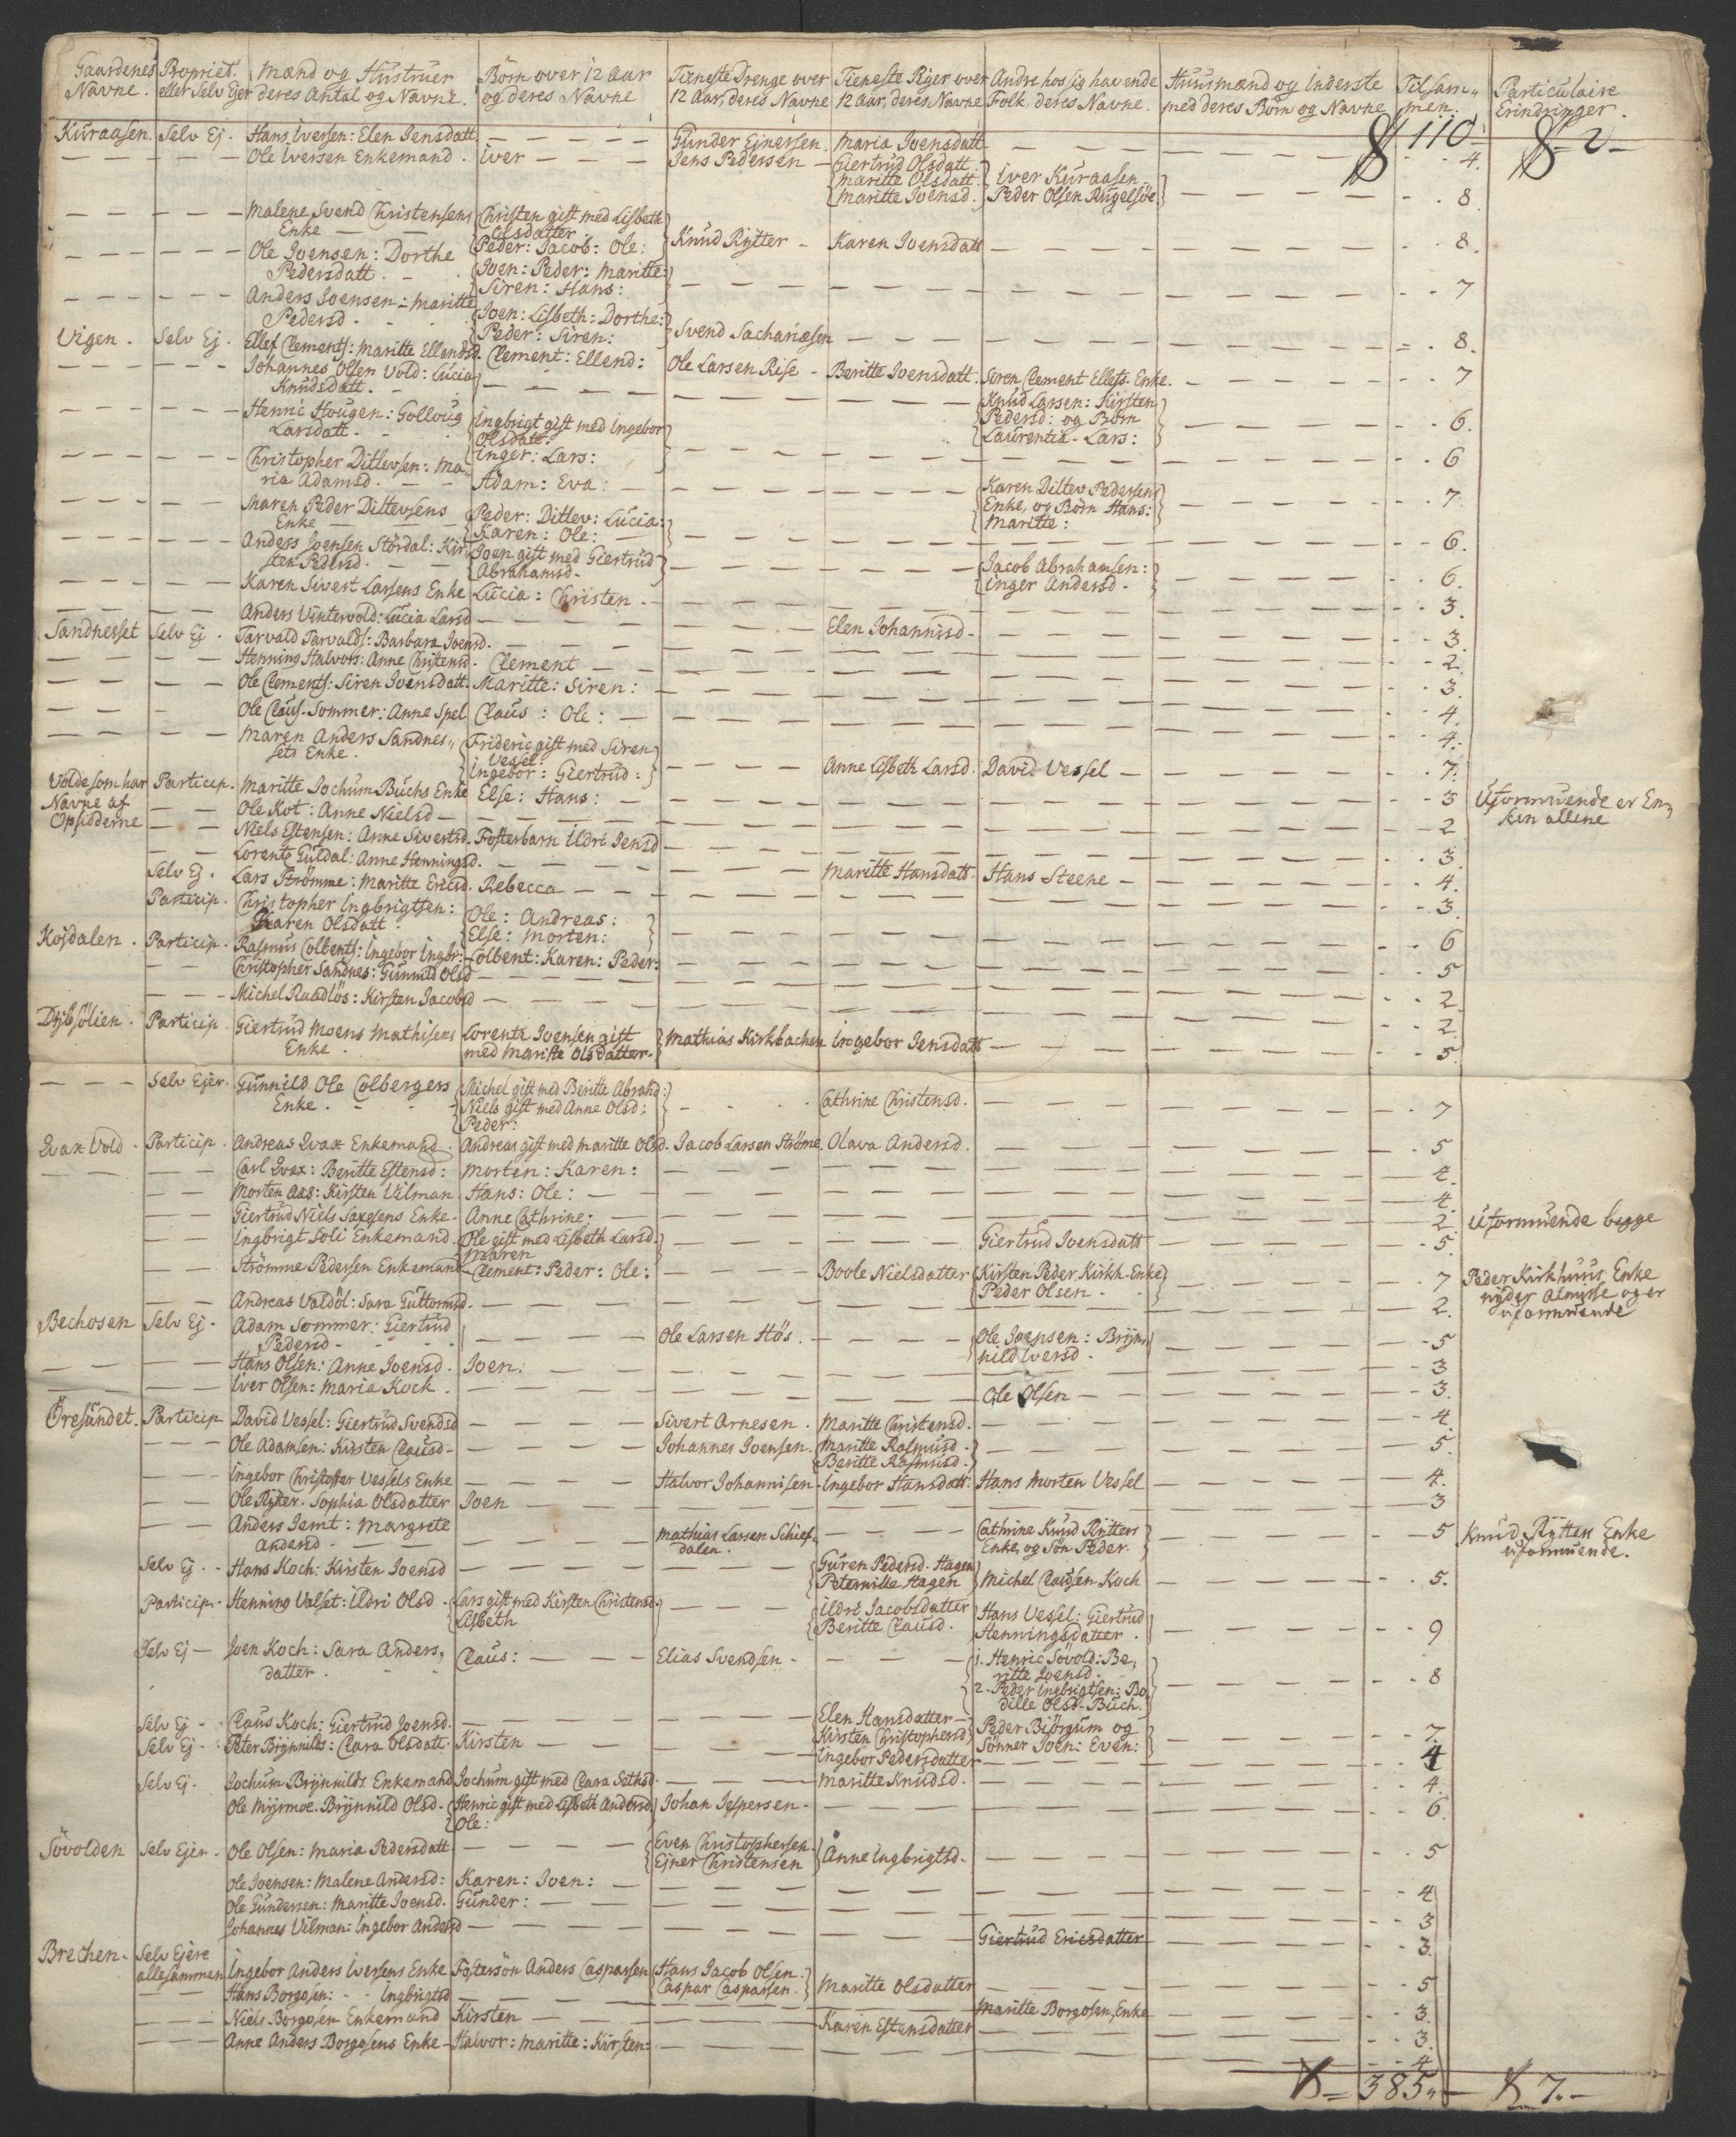 Gaardenes Navne. Propriet. eller Selv Ejer Mænd og Hustruer deres Antal og Navne. Börn over 12 Aar og deres Navne Tieneste Drenge over 12 Aar, deres Navne Tieneste Piger over 12 Aar, deres Navne Andre hos sig havende Folk, deres Navne. Huusmænd og Inderste med deres Börn og Navne Tilsam„men. Particulaire Erindringer.
110 2
Kuraasen. Selv Ej. Hans Iversen: Elen Jensdatt. Gunder Ejnersen. Maria Joensdatt 4.
Ole Iversen Enkemand. Iver Jens Pedersen Giertrud Olsdatt. Maritte Olsdatt. Maritte Joensd. Iver Kuraasen Peder Olsen Rugelsöe 8.
Malene Svend Christensens Enke Christen gift med Lisbeth Olsdatter. Peder: Jacob: Ole: Knud Rytter Karen Joensdatt 8.
Ole Joensen: Dorthe Pedersdatt. Joen: Peder: Maritte: Siren: Hans: 7
Anders Joensen: Maritte Pedersd. Joen: Lisbeth: Dorthe: Peder: Siren: Svend Sachariesen 8.
Vigen. Selv Ej. Ellef Clements: Maritte Ellendsd. Clement: Ellend: Ole Larsen Rise Beritte Joensdatt. Siren Clement Ellefs. Enke. 7
Johannes Olsen Vold: Lucia Knudsdatt. Knud Larsen: Kirsten Pedersd: og Börn Laurentia. Lars: 6.
Henric Hougen: Gollaug Larsdatt. Ingbrigt gift med Ingebor Olsdatt. Inger: Lars: 6
Christopher Ditlevsen: Ma„ria Adamsd. Adam: Eva: Karen Ditlev Pedersens Enke, og Börn Hans: Maritte: 7.
Maren Peder Ditlevsens Enke Peder: Ditlev: Lucia: Karen: Ole: 6.
Anders Joensen Stördal: Kir„sten Pedersd. Joen gift med Giertrud Abrahamsd. Jacob Abrahamsen: Inger Andersd. 6.
Karen Sivert Larsens Enke Lucia: Christen 3.
Anders Vintervold: Lucia Larsd Elen Johannisd. 3.
Sandnesset Selv Ej. Tarvald Tarvalds: Barbara Joensd. 2.
Henning Halvors: Anne Christensd. Clement 3.
Ole Clements: Siren Joensdatt. Maritte: Siren: 4.
Ole Claus. Sommer: Anne Spel Claus: Ole: 4.
Maren Anders Sandnes„sets Enke. Frideric gift med Siren Vessel. Ingebor: Giertrud: Anne Lisbeth Larsd. David Vessel 7.
Volde som har Navne af Opsidderne Particip. Maritte Jochum Buchs Enke Else: Hans: 3 Uformuende er En„ken allene
Ole Kot: Anne Nielsd 2
Niels Estensen: Anne Sivertsd. Fosterbarn Ildri Jensd 3.
Lorentz Guldal: Anne Henningsd. Maritte Hansdatt. Hans Steene 4.
Selv Ej. Lars Strömme: Maritte Ericsd. Rebecca 3.
Particip. Christopher Ingbrigtsen: Karen Olsdatt. Ole: Andreas: Else: Morten: 6
Kojdalen. Particip. Rasmus Colbents: Ingebor Ingbr: Colbent: Karen: Peder: 5
Christopher Sandnes: Gunnild Olsd 2
Michel Raadlös: Kirsten Jacobsd 2.
Dybsölien. Particip. Giertrud Moens Mathisens Enke. Lorentz Joensen gift med Maritte Olsdatter. Mathias Kirkbachen Ingebor Jensdatt 5.
Selv Ejer. Gunnild Ole Colbergers Enke. Michel gift med Beritte Abrahd: Niels gift med Anne Olsd: Peder: Cathrine Christensd. 7
Qvax Vold. Particip. Andreas Qvax Enkemand. Andreas gift med Maritte Olsd. Jacob Larsen Ströme. Olava Andersd. 5
Carl Qvax: Beritte Estensd: Morten: Karen: 4.
Morten Aas: Kirsten Vilman. Hans: Ole: 4.
Giertrud Niels Saxesens Enke. Anne Cathrine: 2. Uformuende begge
Ingbrigt Soli Enkemand. Ole gift med Lisbeth Larsd. Maren Giertrud Joensdatt 5.
Strömme Pedersen Enkemand Clement: Peder: Ole: Boole Nielsdatter Kirsten Peder Kirkh. Enke Peder Olsen. 7 Peder Kirkhuus Enke nyder Almisse og er uformuende
Andreas Valdöl: Sara Guttormsd. 2.
Bechosen Selv Ej. Adam Sommer: Giertrud Pedersd. Ole Larsen Hös. Ole Joensen: Bryn„hild Iversd. 5
Hans Olsen: Anne Joensd. Joen: 3
Iver Olsen: Maria Kock. Ole Olsen 3.
Öresundet. Particip David Vessel: Giertrud Svendsd Sivert Arnesen. Maritte Christensd. 4.
Ole Adamsen: Kirsten Clausd. Johannes Joensen. Maritte Rasmusd. Beritte Rasmusd. 5.
Ingebor Christoffer Vessels Enke Halvor Johannisen Ingebor Hansdatt: Hans Morten Vessel 4.
Ole Rytter. Sophia Olsdatter Joen 3
Anders Jemt: Margrete Andersd. Mathias Larsen Schief„dalen. Cathrine Knud Rytters Enke, og Sön Peder. 5 Knud Rytters Enke uformuende.
Selv Ej. Hans Koch: Kirsten Joensd Guren Pedersd. Hagen Peternille Hagen Michel Clausen Koch 5.
Particip. Henning Valset: Ildri Olsd. Lars gift med Kirsten Christensd. Lisbeth Ildri Jacobsdatter Beritte Clausd. Hans Vessel: Giertrud Henningsdatter. 9
Selv Ej Joen Koch: Sara Anders„datter. Claus: Elias Svendsen 1. Henric Sövold: Be„ritte Joensd. 2. Peder Ingbrigtsen: Bo„dille Olsd. Buch. 8
Selv Ej Claus Koch: Giertrud Joensd. Elen Hansdatter Kirsten Christophersd. Peder Biörgum og Sönner Joen: Even: 7.
Selv Ej Peter Brynnilds: Clara Olsdatt. Kirsten Ingebor Pedersdatter 4
Selv Ej. Jochum Brynnilds Enkemand Jochum gift med Clara Sethsd. Maritte Knudsd. 4.
Ole Myrmoe. Brynnild Olsd. Henric gift med Lisbeth Andersd. Ole: Johan Jespersen. 6.
Sövolden Selv Ejer. Ole Olsen: Maria Pedersdatt. Even Christophersen. Ejner Christensen Anne Ingbrigtsd. 5
Ole Joensen: Malene Andersd: Karen: Joen: 4
Ole Gundersen: Maritte Joensd. Gunder: 3
Johannes Vilman: Ingebor Andersd Giertrud Ericsdatter 3.
Brechen. Selv Ejere allesammen Ingebor Anders Iversens Enke Fostersön Anders Casparsen Hans Jacob Olsen. Caspar Casparsen. Maritte Olsdatter 5
Hans Borgosen: Ingbrigtsd Maritte Borgosen, Enke 3.
Niels Borgosen Enkemand Kirsten Karen Estensdatter 3.
Anne Anders Borgosens Enke Halvor: Maritte: Kirsten: 4
385„ 7.